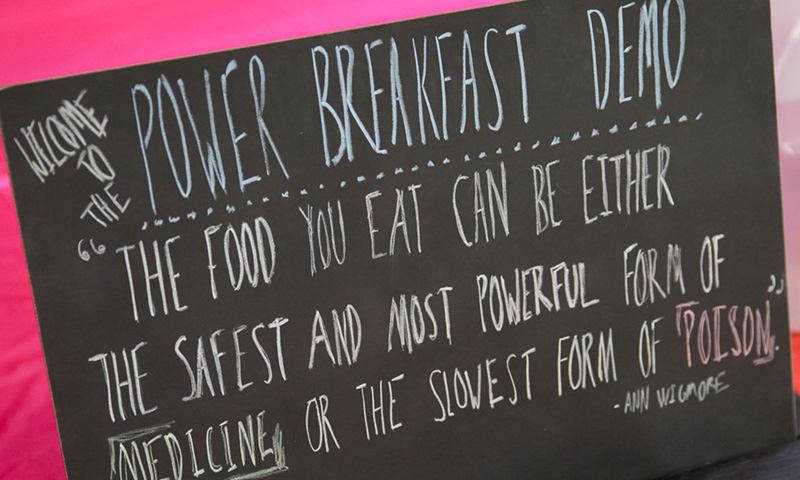 WELCOME
TO
THE
POWER BREAKFAST DEMO
“THE FOOD YOU EAT CAN BE EITHER
THE SAFEST AND MOST POWERFUL FORM OF
MEDICINE OR THE SLOWEST FORM OF POISON”
-ANN WIGMORE